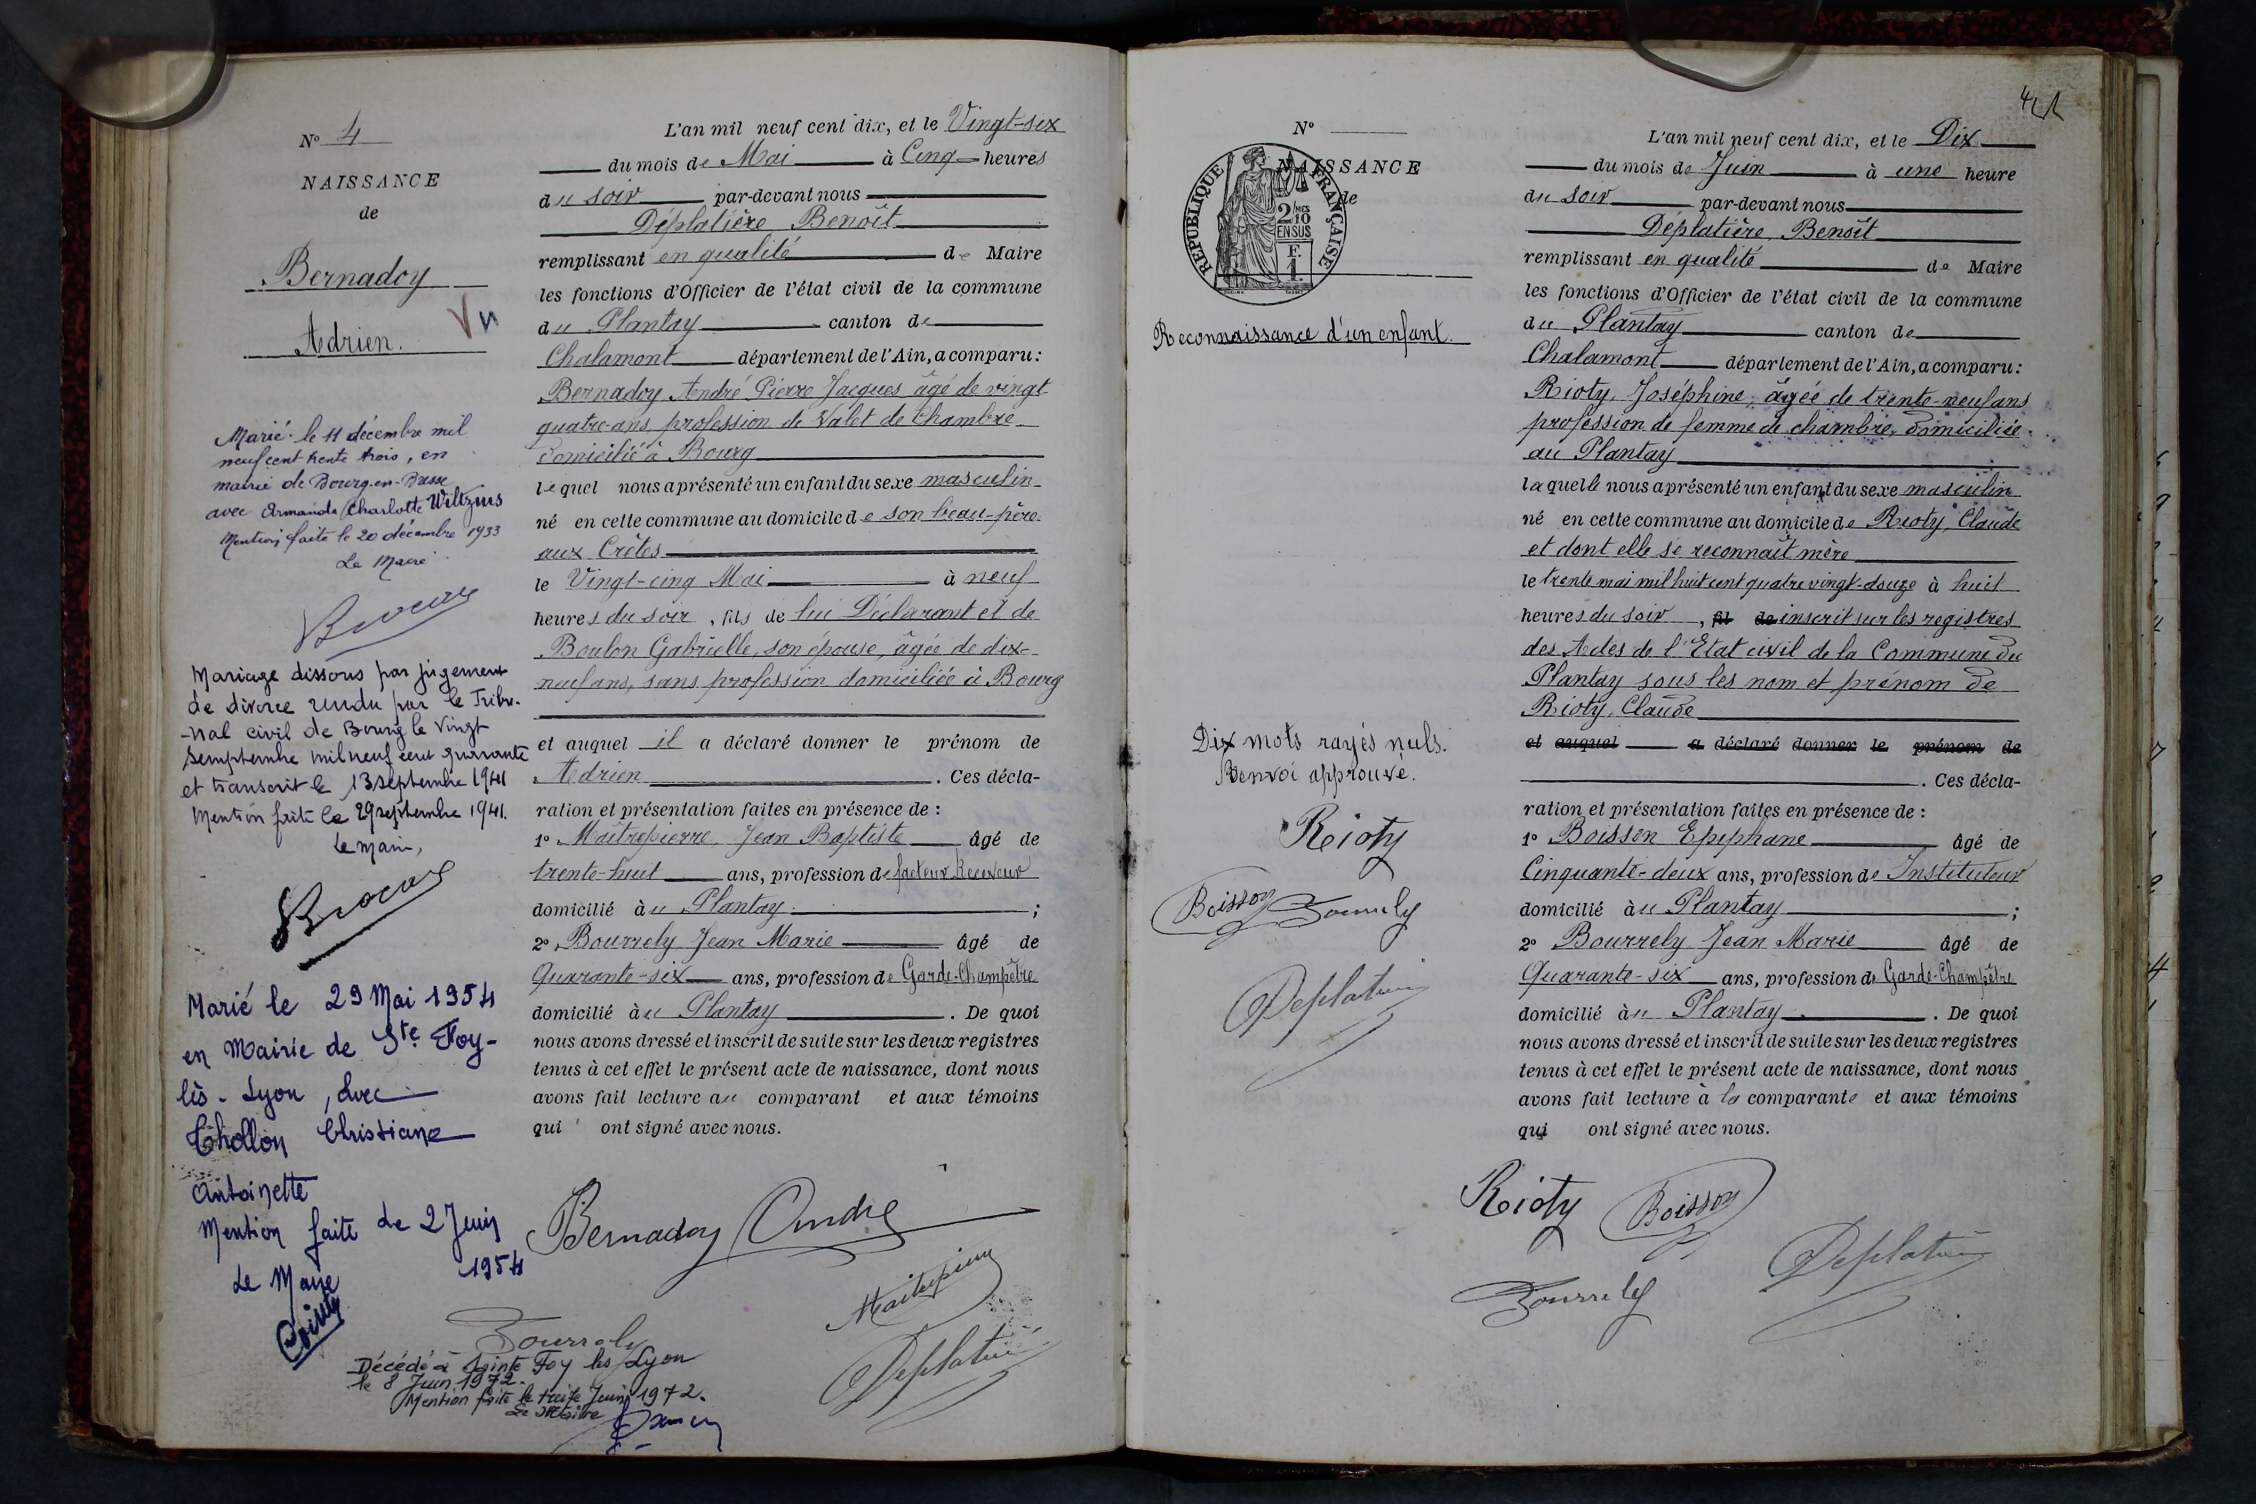 N° 4
NAISSANCE
de
Bernadoy
Adrien.
Vu
Marié le 11 décembre mil
neuf cent trente trois, en
mairie de Bourg-en-Bresse
avec Armande Charlotte Wiltzius
Mention faite le 20 décembre 1933
Le Maire
Mariage dissous par jugement
de divorce rendu par le Tribu-
-nal civil de Bourg le Vingt
Semptembre mil neuf cent quarante
et transcrit le 13 septembre 1941
Mention faite le 29 septembre 1941.
Le maire,
Marié le 29 Mai 1954
en Mairie de Ste Foy-
lès-Lyon, avec
Chollon Christiane
Antoinette
Mention faite le 2 Juin
1954
Le Maire
L'an mil neuf cent dix, et le Vingt-six
du mois de Mai à Cinq heures
du soir par-devant nous
Déplatière Benoît
remplissant en qualité de Maire
les fonctions d'Officier de l'état civil de la commune
du Plantay canton de
Chalamont département de l'Ain, a comparu :
Bernadoy, André Pierre Jacques âgé de vingt
quatre-ans, profession de Valet de Chambre
domicilié à Bourg
lequel nous a présenté un enfant du sexe masculin
né en cette commune au domicile de son beau-père
aux Crêtes
le Vingt-cinq Mai à neuf
heures du soir, fils de lui Déclarant et de
Boulon Gabrielle, son épouse, âgée de dix-
neuf ans, sans profession domiciliée à Bourg
et auquel il a déclaré donner le prénom de
Adrien. Ces décla-
ration et présentation faites en présence de :
1° Maitrepierre, Jean Baptiste âgé de
trente-huit ans, profession de facteur Receveur
domicilié au Plantay ;
2° Bourrely Jean Marie âgé de
Quarante-six ans, profession de Garde-Champêtre
domicilié au Plantay. De quoi
nous avons dressé et inscrit de suite sur les deux registres
tenus à cet effet le présent acte de naissance, dont nous
avons fait lecture au comparant et aux témoins
qui ont signé avec nous.
Bernadoy André
Maitrepierre
Bourrely
Deplatière
Décédé à Sainte Foy les Lyon
le 8 Juin 1972.
Mention faite le treize Juin 1972.
Le Maire
41
N°
NAISSANCE
de
RÉPUBLIQUE FRANÇAISE
2/10 MES
EN SUS
F.
1.
Reconnaissance d'un enfant.
Dix mots rayés nuls.
Renvoi approuvé.
Rioty
Boisson Bourrely
Deplatière
L'an mil neuf cent dix, et le Dix
du mois de Juin à une heure
du soir par-devant nous
Déplatière, Benoît
remplissant en qualité de Maire
les fonctions d'Officier de l'état civil de la commune
du Plantay canton de
Chalamont département de l'Ain, a comparu :
Rioty, Joséphine, âgée de trente-neuf ans
profession de femme de chambre, domiciliée
au Plantay
laquelle nous a présenté un enfant du sexe masculin
né en cette commune au domicile de Rioty, Claude
et dont elle se reconnaît mère
le trente mai mil huit cent quatre vingt-douze à huit
heures du soir, fil de inscrit sur les registres
des Actes de l'Etat civil de la Commune du
Plantay sous les nom et prénom de
Rioty, Claude
et auquel a déclaré donner le prénom de
. Ces décla-
ration et présentation faites en présence de :
1° Boisson Epiphane âgé de
Cinquante-deux ans, profession de Instituteur
domicilié au Plantay ;
2° Bourrely Jean Marie âgé de
Quarante-six ans, profession de Garde-Champêtre
domicilié au Plantay. De quoi
nous avons dressé et inscrit de suite sur les deux registres
tenus à cet effet le présent acte de naissance, dont nous
avons fait lecture à la comparante et aux témoins
qui ont signé avec nous.
Rioty Boisson
Bourrely Deplatière